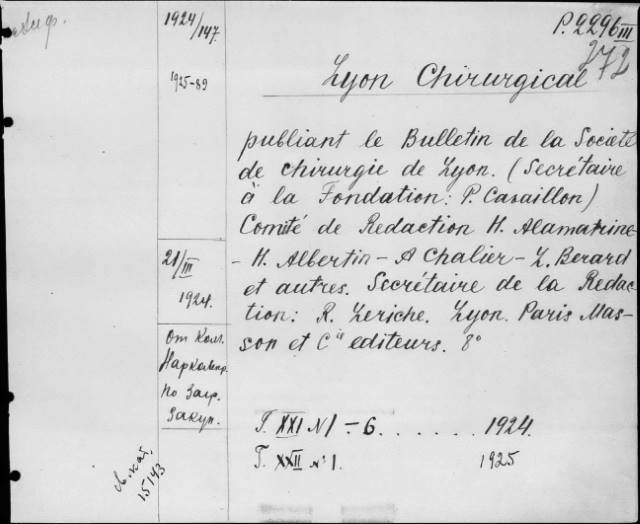 1924/147.
P.2296 III
272
1925-89
Lyon Chirurgical
publiant le Bulletin de la Societé
de chirurgie de Lyon. (Secrétaire
à la Fondation: P. Cavaillon)
Comité de Redaction H. Alamatrine-
- H. Albertin - A Chalier - L. Berard
et autres. Secrétaire de la Redac-
tion: R. Leriche. Lyon. Paris Mas-
son et Cie editeurs. 8°
21/III
1924.
От Ком.
по Загр.
Закуп.
T. XXI N 1 - 6. . . . . . . 1924.
T. XXII N: 1. 1925
15143